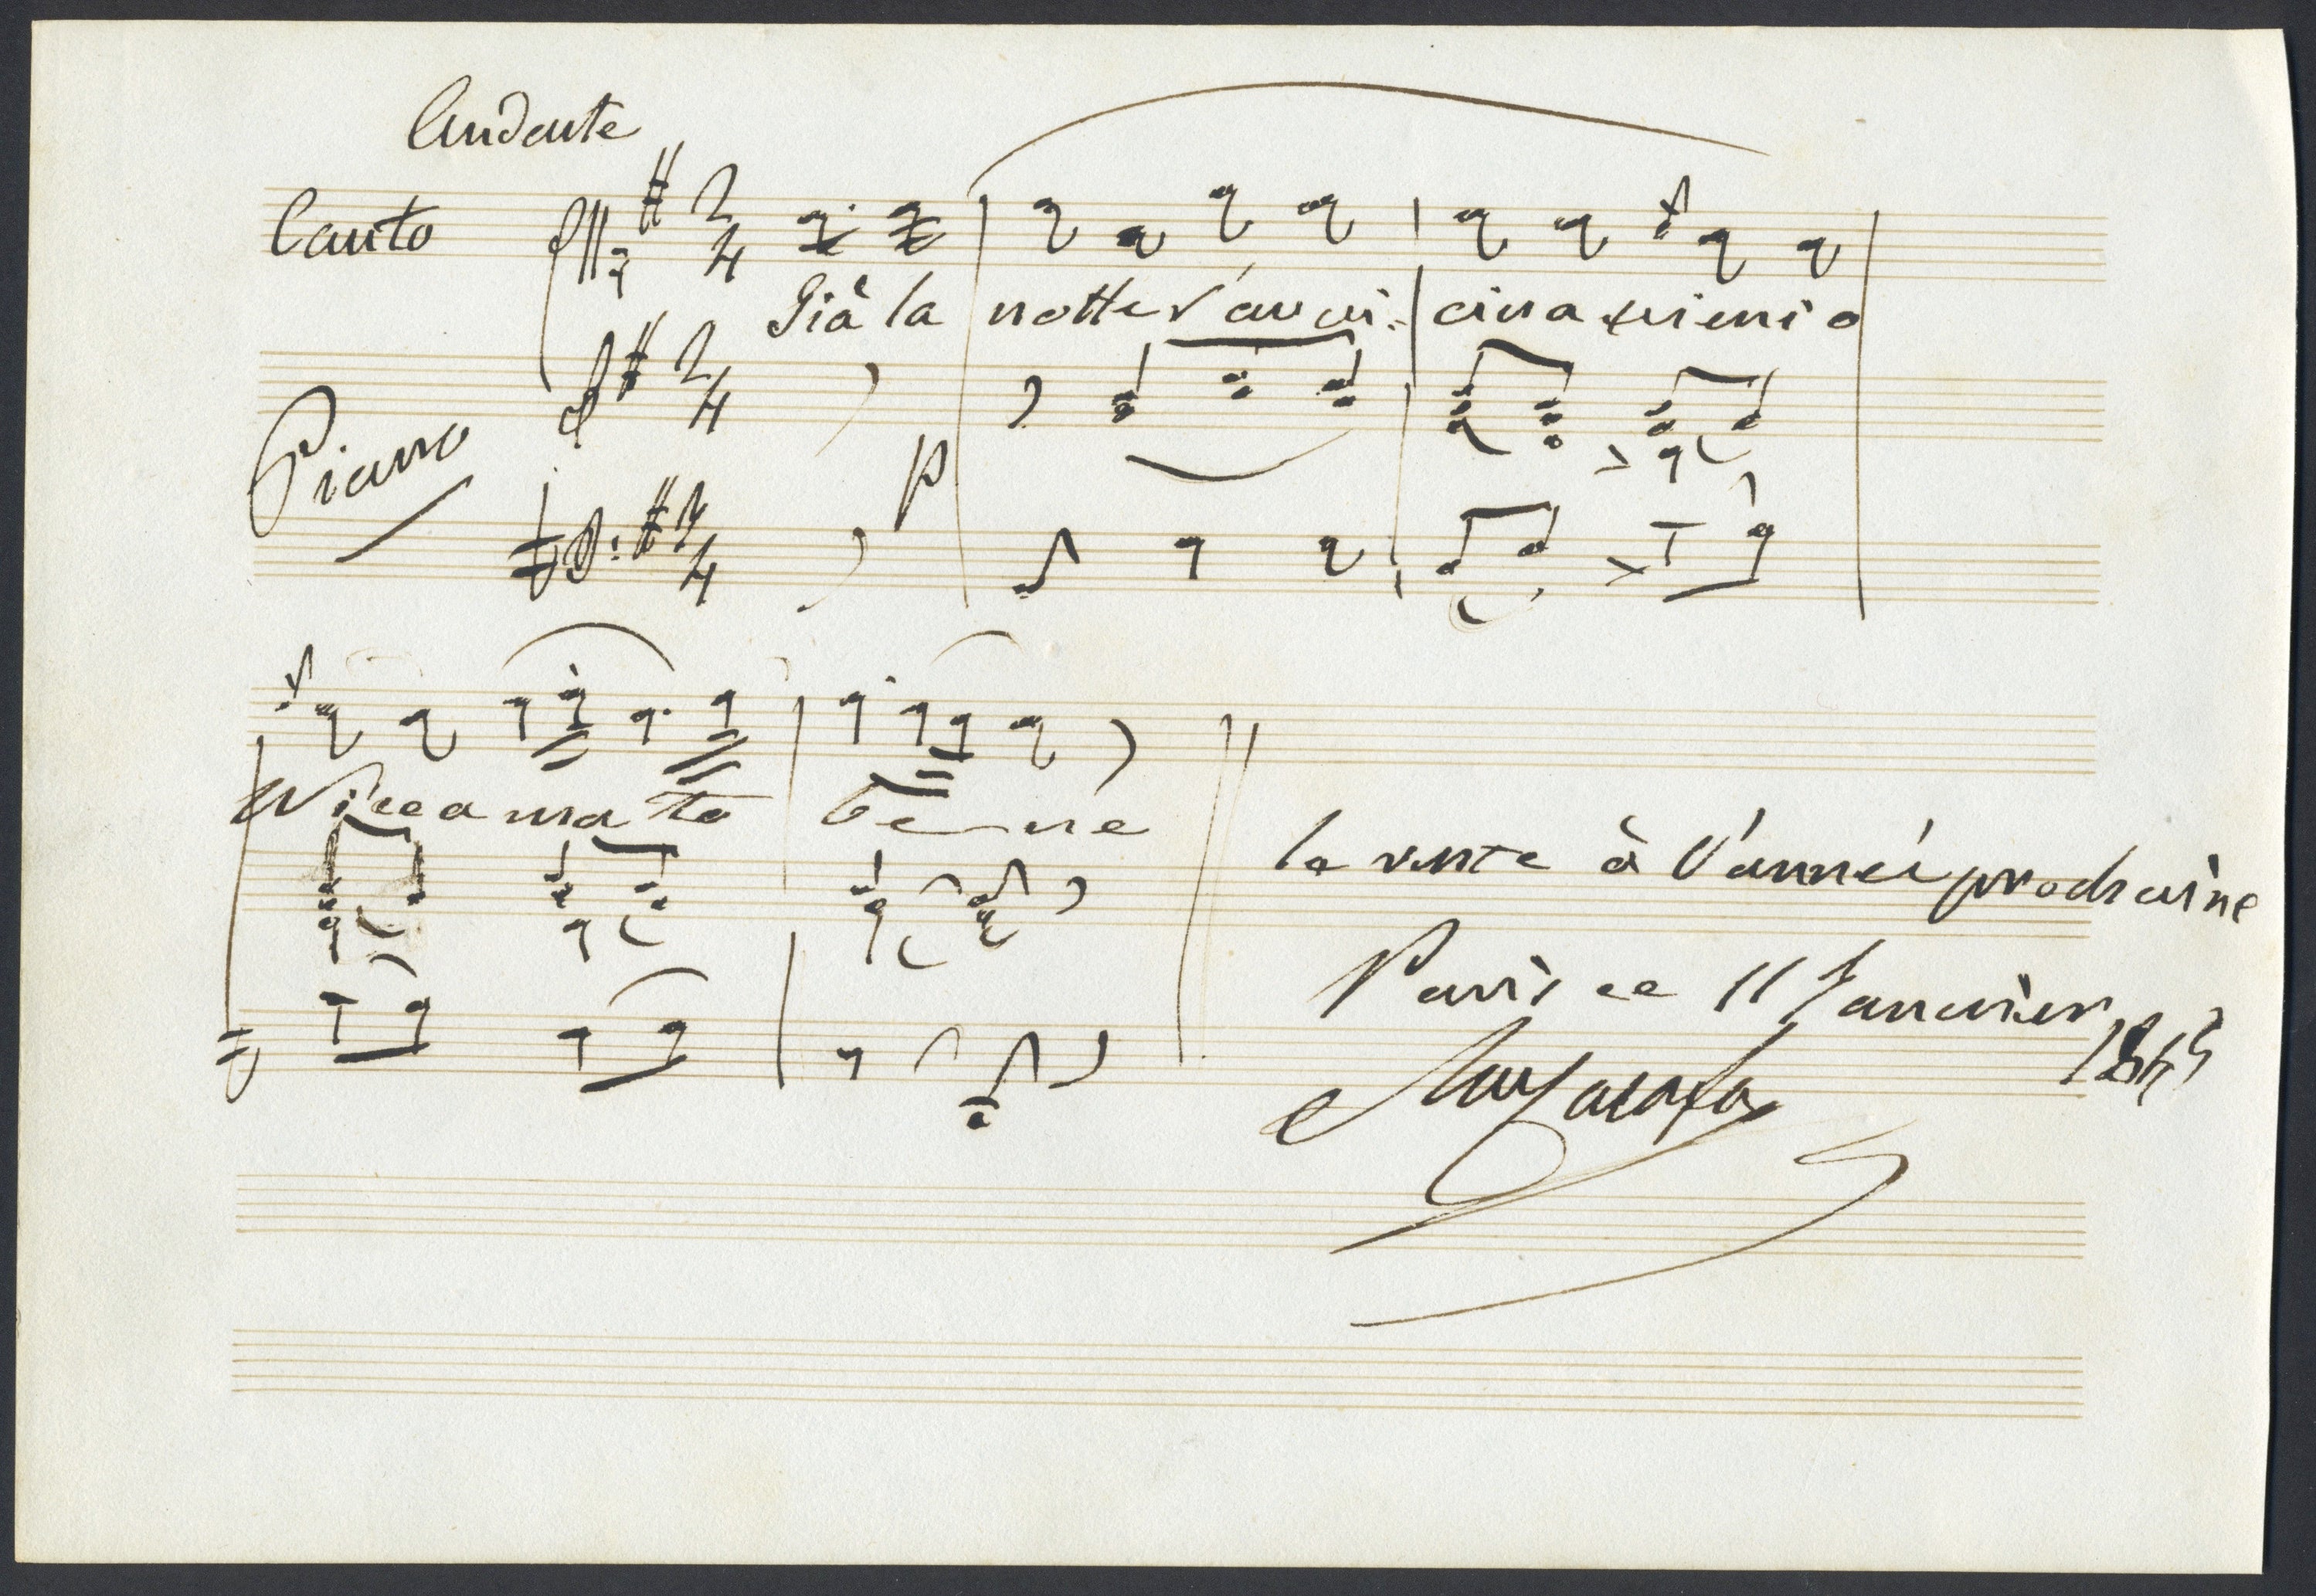 Andante
Canto
2/4
Già la notte s'avvi= cina vieni o
2/4
Piano
p
2/4
Nice amato bene
le reste à l'année prochaine
Paris ce 11 Janvier
1845
M Carafa